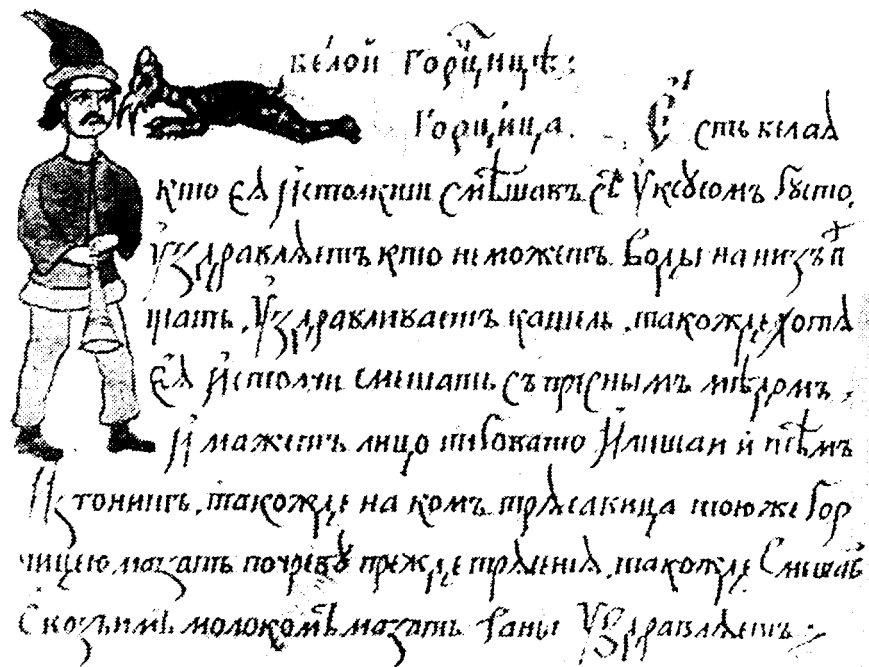 бе́лой горчи́цѣ:
Горчи́ца. Есть белая
кто ея̀ и҆столкши смѣшавъ съ ѹ҆ксꙋсомъ густо,
ѹ҆здравляетъ кто не можетъ воды на низъ п
щать, ѹ҆здравливаетъ кашель, такожде хотя
ея̀ и҆столчи смешати съ преснымъ мѣдомъ,
и҆ мажетъ лицо шибовато и҆ лишаи и҆ тѣмъ
и҆зтонитъ, такожде на комъ трясавица тоюже гор
чицею мазать по чревꙋ прежде трясения, такожде смешав
с козьимъ молокомъ мазать раны ѹ҆здравляетъ: